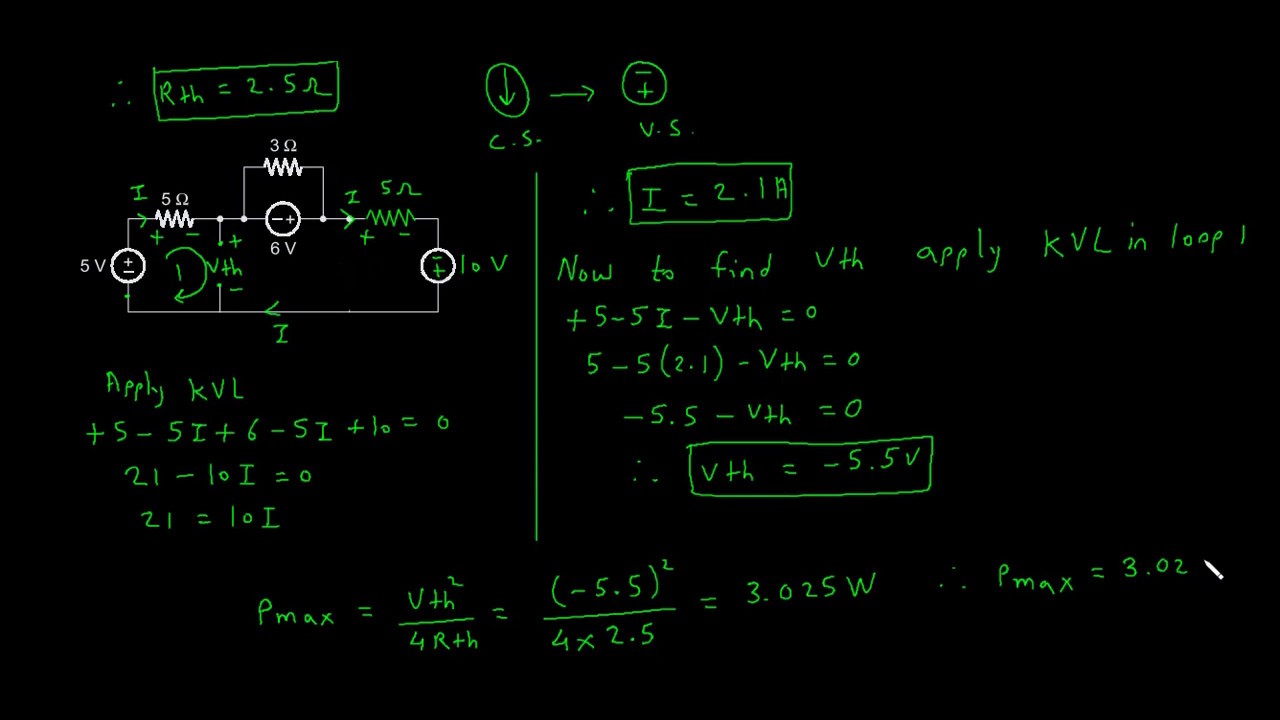 ∴ Rth = 2.5Ω
C.S. → V.S.
3 Ω
I 5 Ω I 5Ω
6 V
5 V 1 + Vth − 10 V
I
Apply KVL
+5 − 5I + 6 − 5I + 10 = 0
21 − 10I = 0
21 = 10I
∴ I = 2.1A
Now to find Vth apply KVL in loop 1
+5−5I − Vth = 0
5 − 5(2.1) − Vth = 0
−5.5 − Vth = 0
∴ Vth = −5.5V
Pmax = Vth² / 4Rth = (−5.5)² / 4×2.5 = 3.025W ∴ Pmax = 3.02